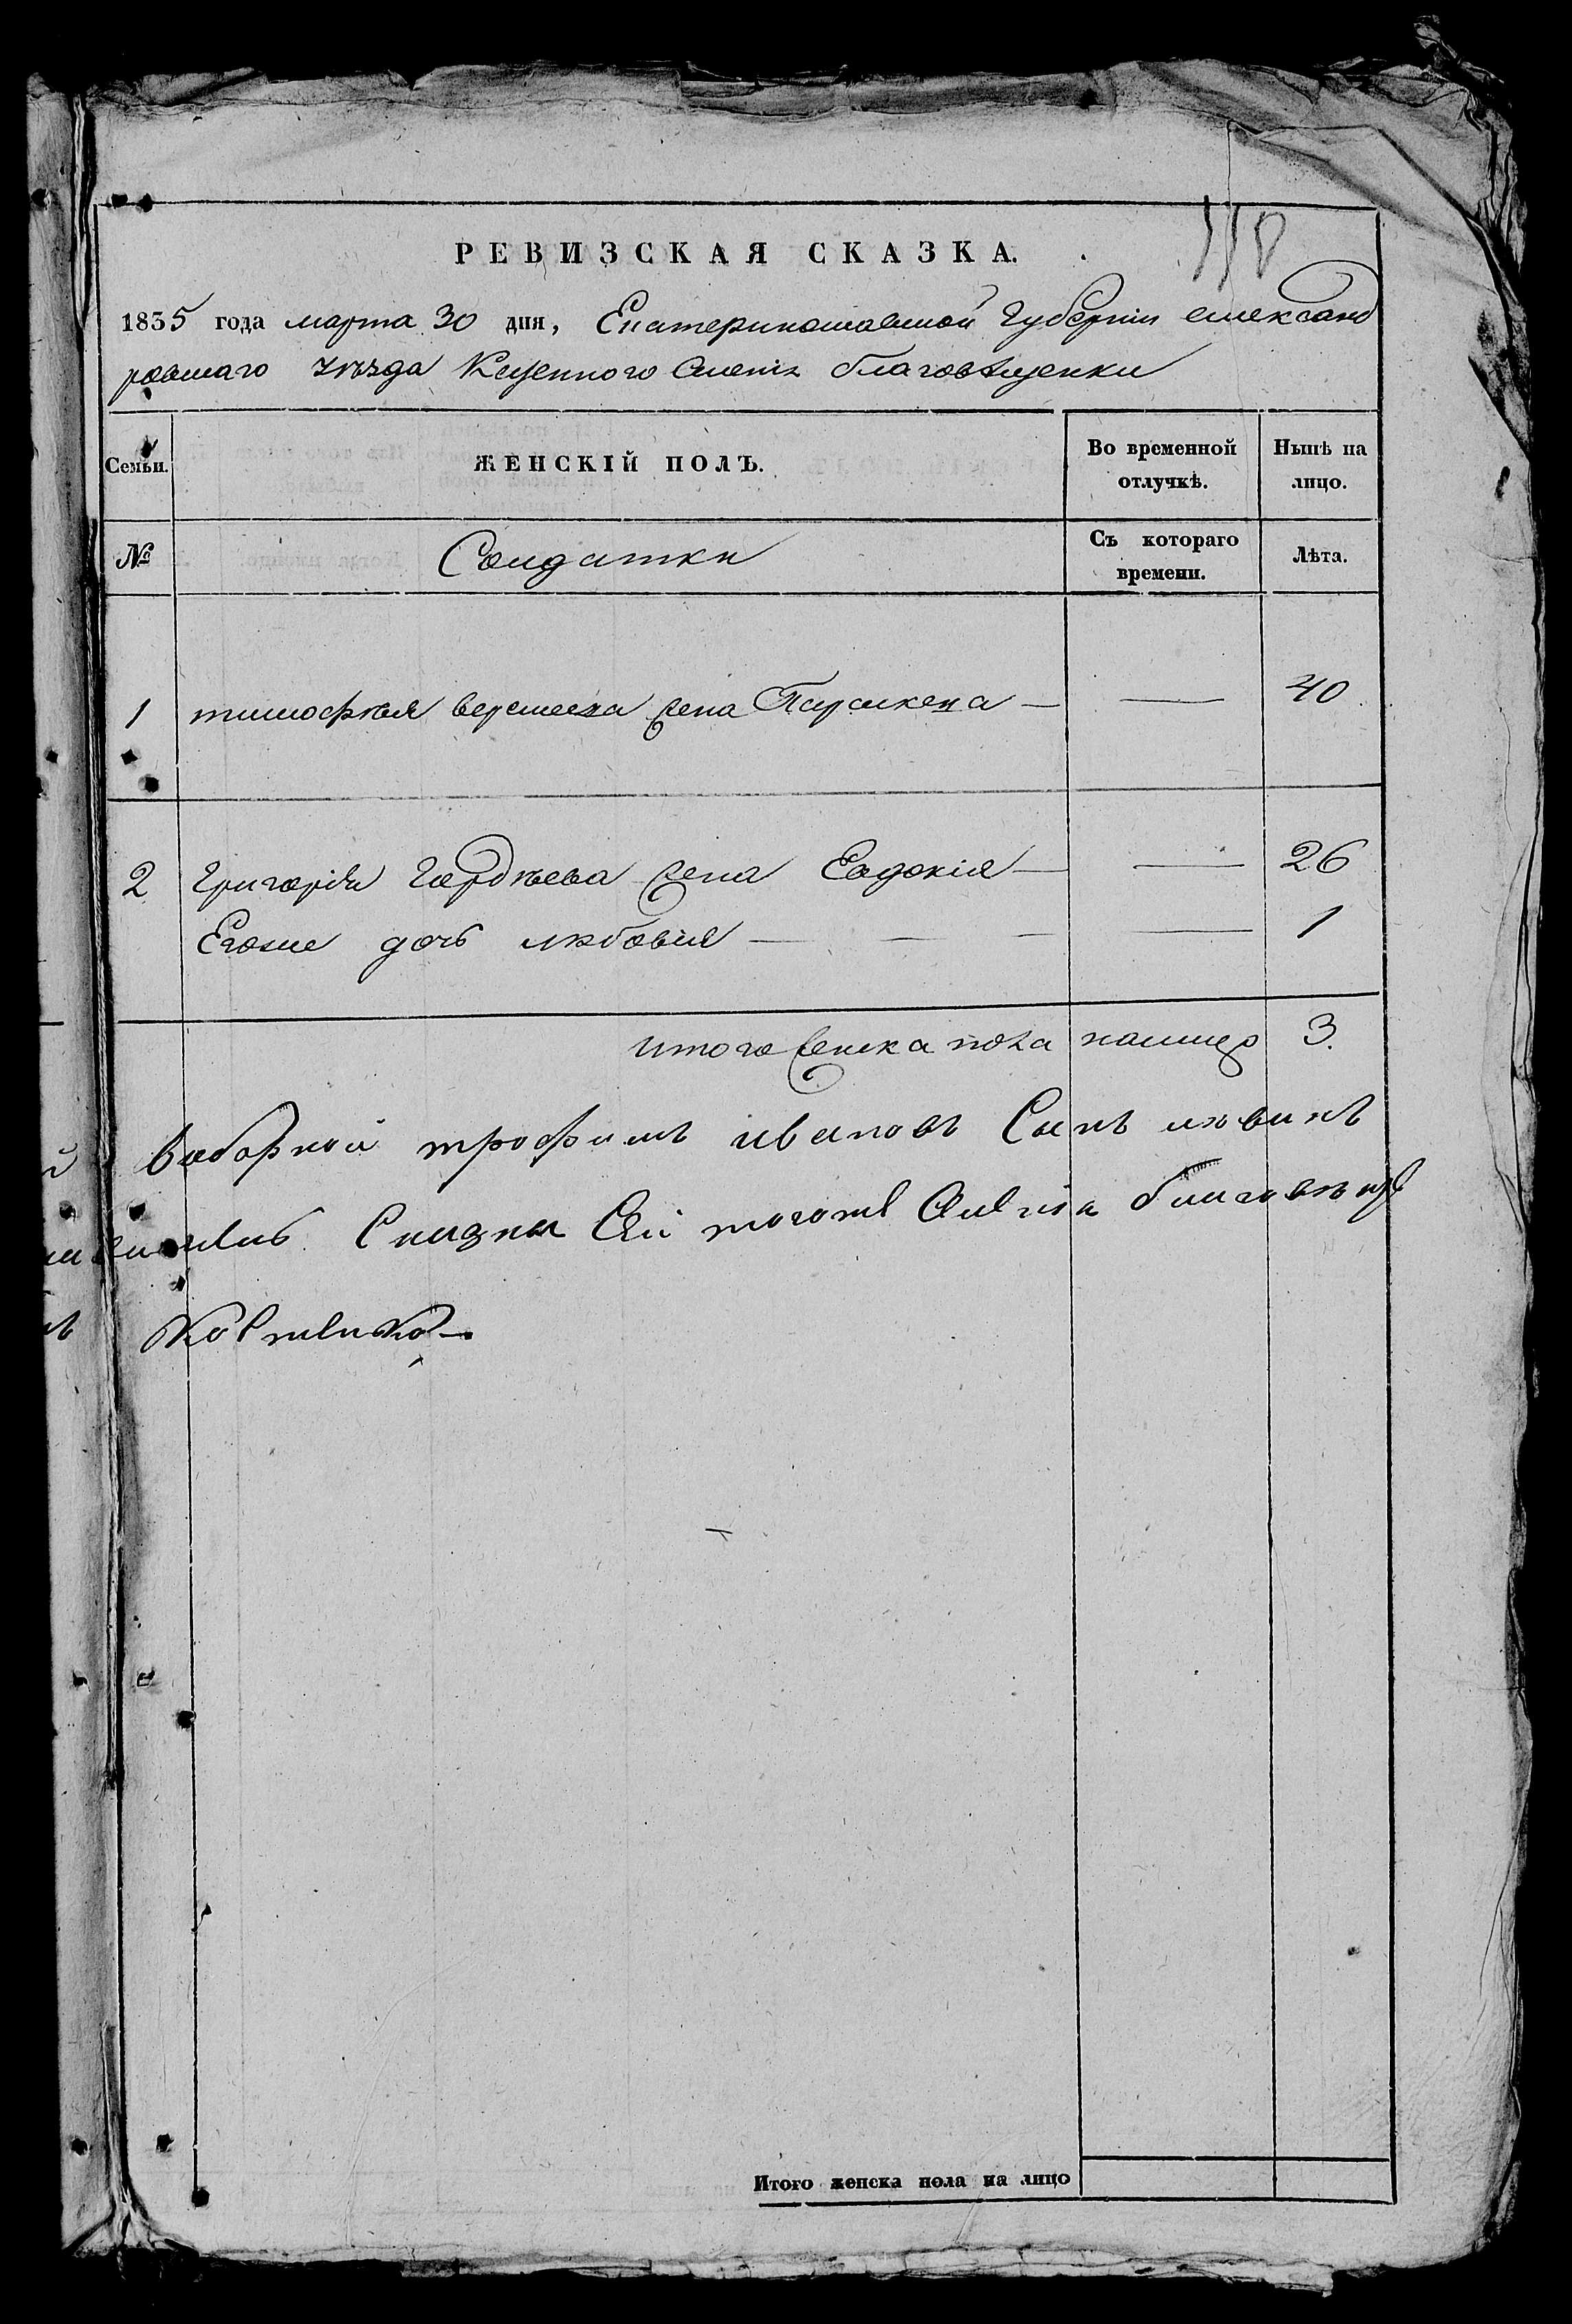 118
РЕВИЗСКАЯ СКАЗКА.
1835 года марта 30 дня, Екатеринославской Губернии александ
ровского уѣзда Казенного Селения благовѣщенки
Семьи. ЖЕНСКІЙ ПОЛЪ. Во временной отлучкѣ. Нынѣ на лицо.
№ Солдатки Съ котораго времени. Лѣта.
1 тимофѣя веремеева жена Параскева — — 40
2 Григорія Гордѣева жена Евдокія — — 26
Егоже дочь любовия — — — — 1
итого женска пола налицо 3.
выборной трофимъ ивановъ Сынъ
Сказки Сей тогоже Селения благовѣще
Итого женска пола на лицо